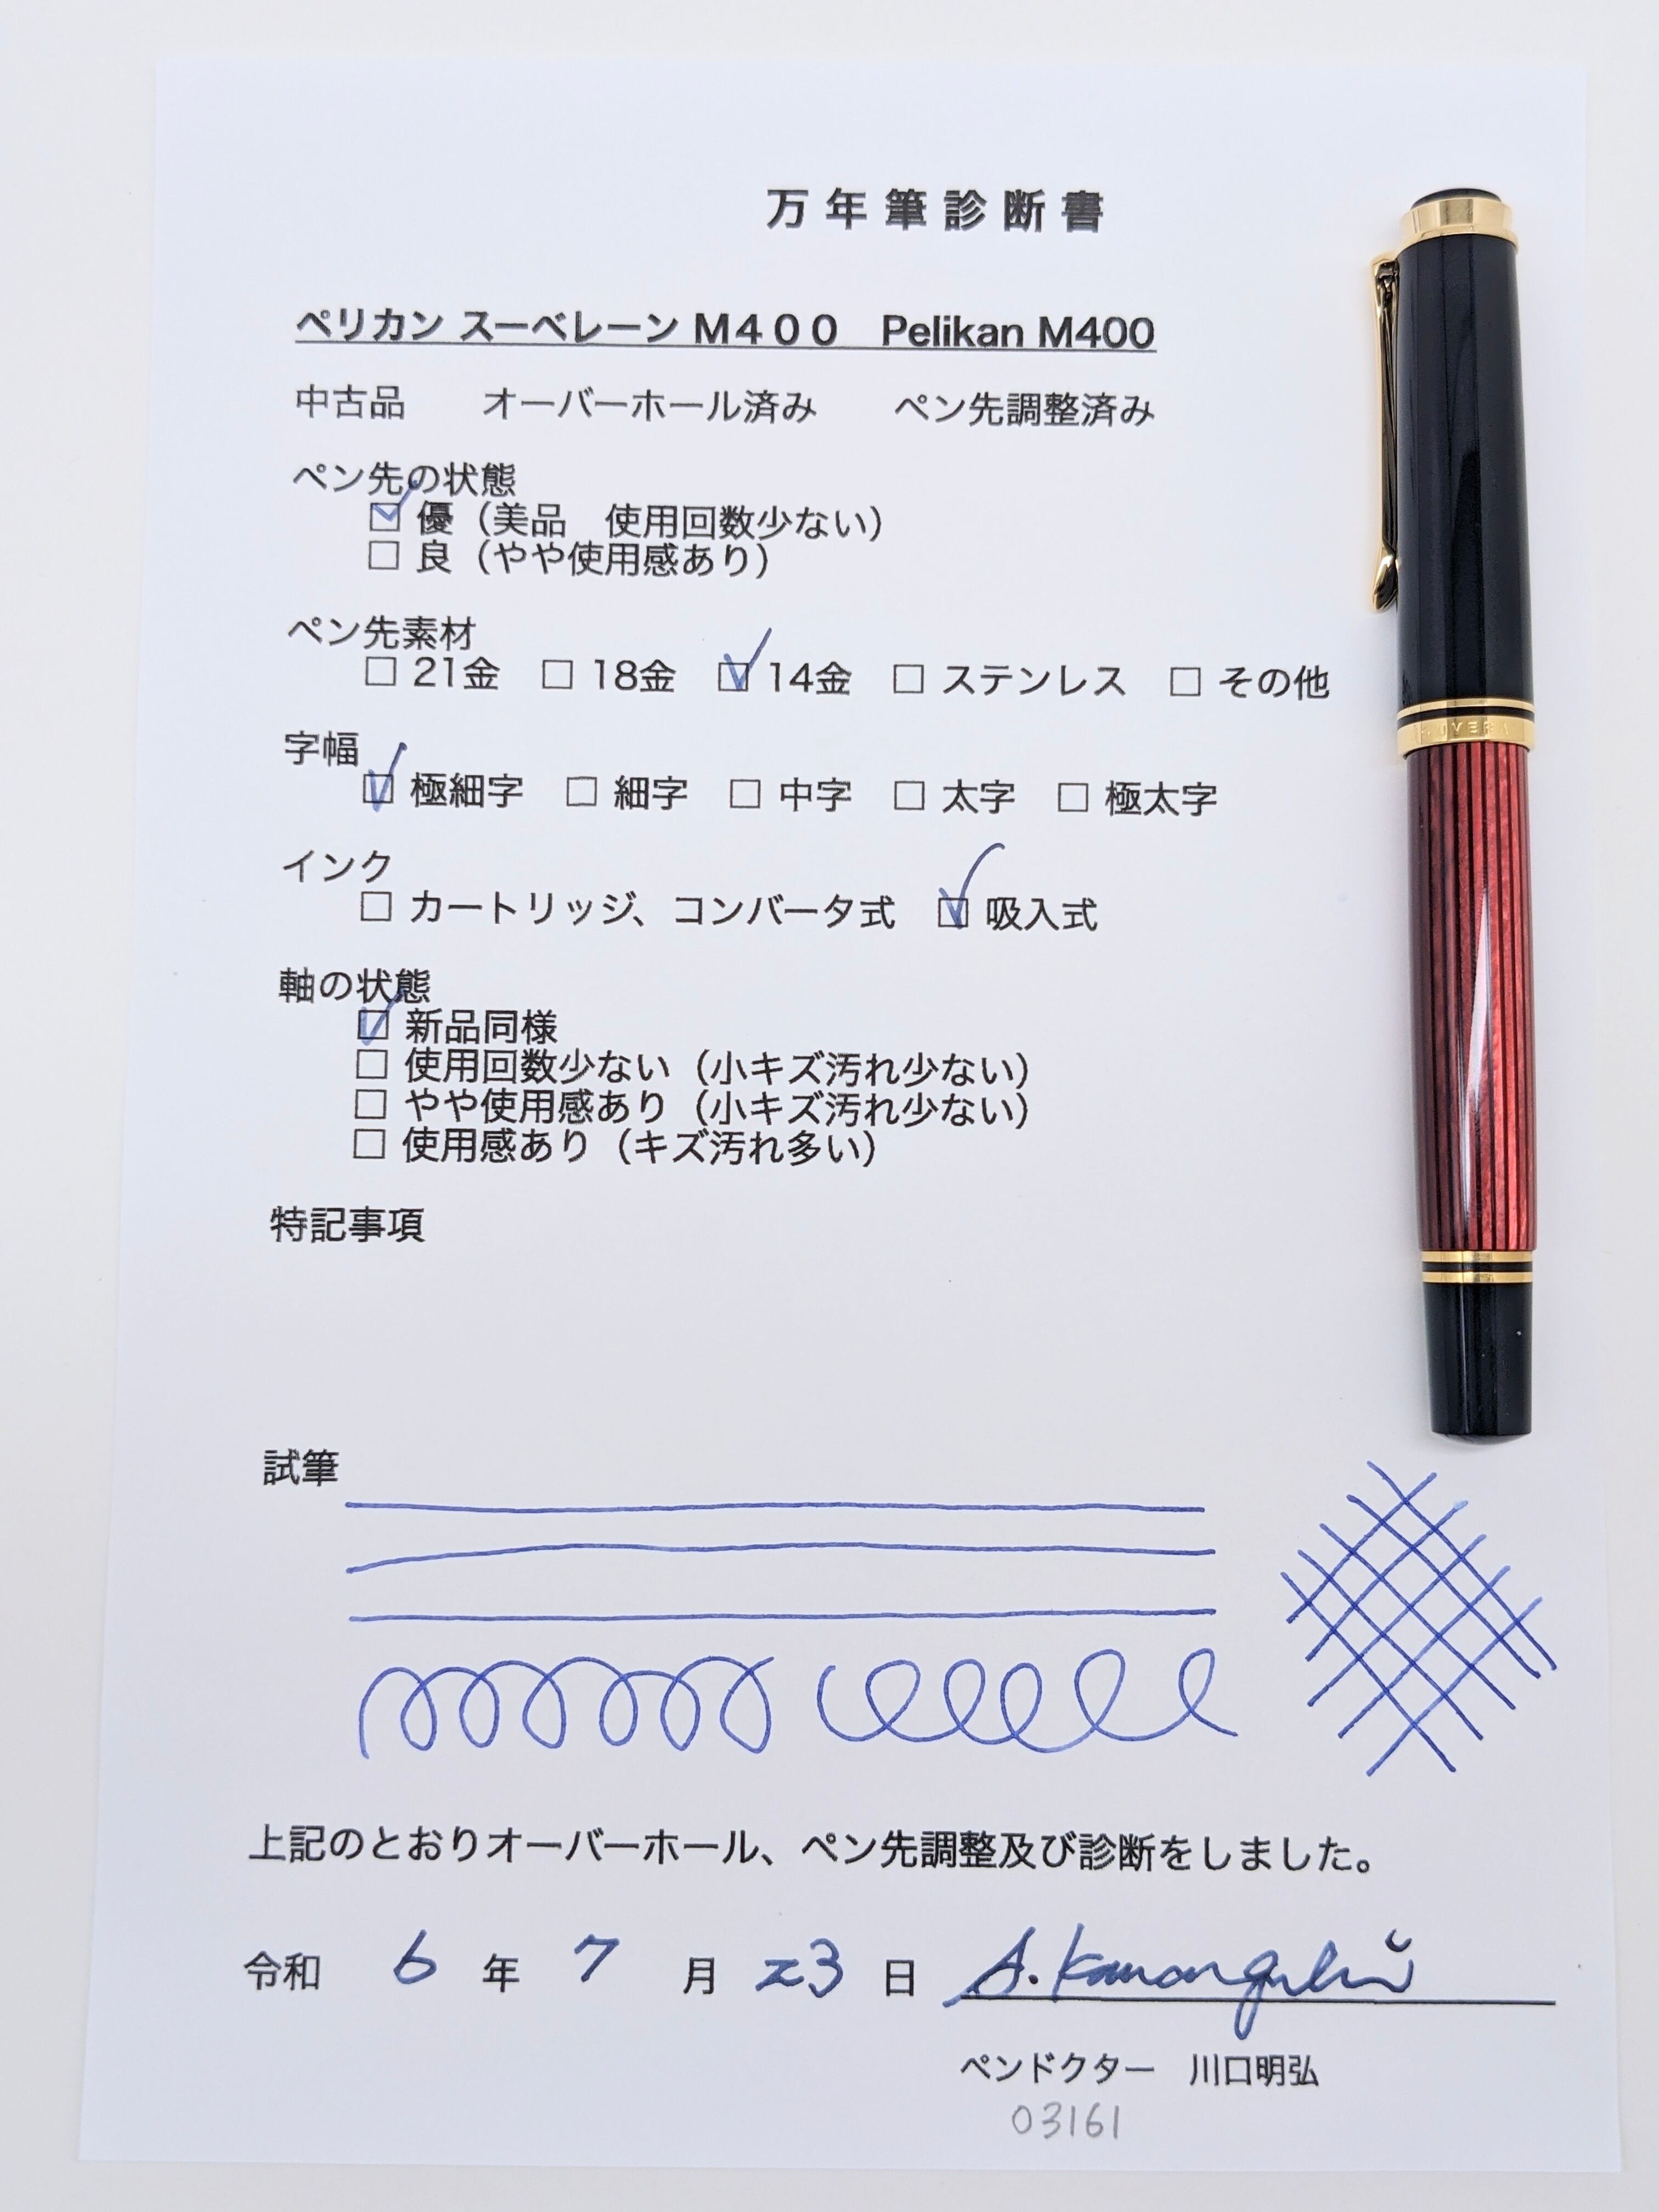 万年筆診断書
ペリカン スーベレーン M400　Pelikan M400
中古品　オーバーホール済み　ペン先調整済み
ペン先の状態
☑ 優（美品　使用回数少ない）
☐ 良（やや使用感あり）
ペン先素材
☐ 21金 ☐ 18金 ☑ 14金 ☐ ステンレス ☐ その他
字幅
☑ 極細字 ☐ 細字 ☐ 中字 ☐ 太字 ☐ 極太字
インク
☐ カートリッジ、コンバータ式 ☑ 吸入式
軸の状態
☑ 新品同様
☐ 使用回数少ない（小キズ汚れ少ない）
☐ やや使用感あり（小キズ汚れ少ない）
☐ 使用感あり（キズ汚れ多い）
特記事項
試筆
上記のとおりオーバーホール、ペン先調整及び診断をしました。
令和 6 年 7 月 23 日 A. Kawaguchi
ペンドクター　川口明弘
03161